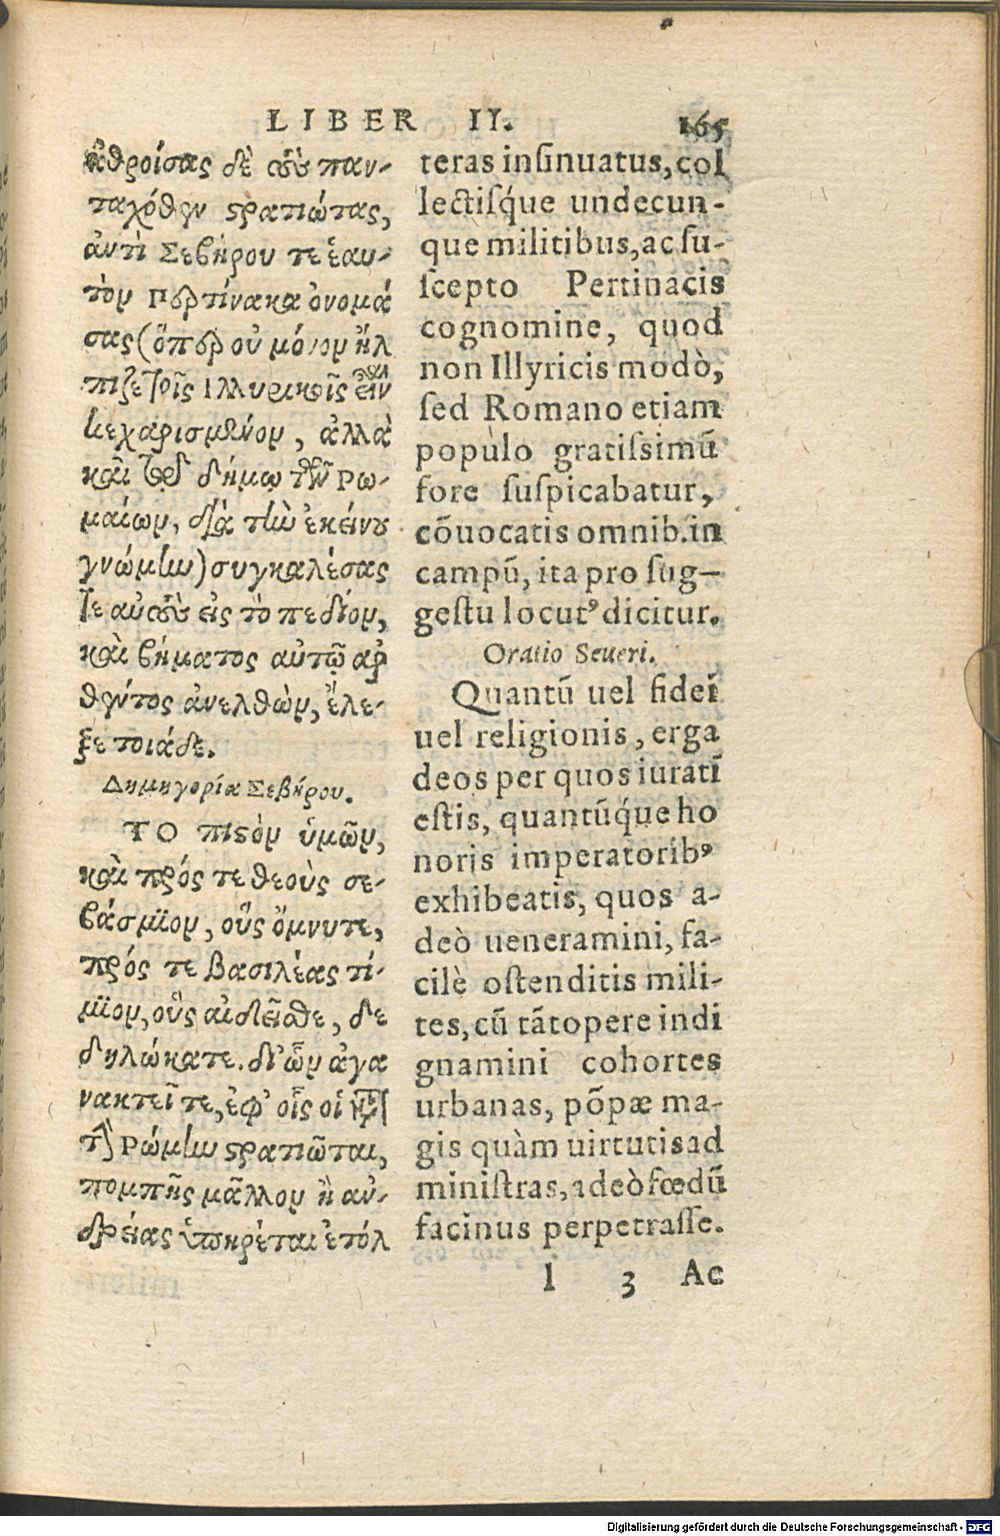 LIBER II. 165
ἀθροίσας δὲ τοὺς παν-
ταχόθεν στρατιώτας,
ἀντὶ Σεβήρου τε ἑαυ-
τὸν Περτίνακα ὀνομά
σας (ὅπερ οὐ μόνον ἤλ
πιζε τοῖς Ἰλλυρικοῖς εἶναι
κεχαρισμένον, ἀλλὰ
καὶ τῷ δήμῳ τῶν Ῥω-
μαίων, διὰ τὴν ἐκείνου
γνώμην) συγκαλέσας
τε αὐτοὺς εἰς τὸ πεδίον,
καὶ βήματος αὐτῷ αρ
θέντος ἀνελθὼν, ἔλε-
ξε τοιάδε.
Δημηγορία Σεβήρου.
ΤΟ πιστὸν ὑμῶν,
καὶ πρός τε θεοὺς σε-
βάσμιον, οὓς ὄμνυτε,
πρός τε βασιλέας τί-
μιον, οὓς αἰδεῖσθε, δε
δηλώκατε. δι' ὧν ἀγα
νακτεῖτε, ἐφ' οἷς οἱ κατὰ
τὴν Ῥώμην στρατιῶται,
πομπῆς μᾶλλον ἢ αν-
δρείας ὑποκρίται ἐτόλ
teras insinuatus, col
lectisq́ue undecun-
que militibus, ac su-
scepto Pertinacis
cognomine, quod
non Illyricis modò,
sed Romano etiam
populo gratissimũ
fore suspicabatur,
cõuocatis omnib. in
campũ, ita pro sug-
gestu locutꝰ dicitur.
Oratio Seueri.
Quantũ uel fidei
uel religionis, erga
deos per quos iurati
estis, quantũq́ue ho
noris imperatoribꝰ
exhibeatis, quos a-
deò ueneramini, fa-
cilè ostenditis mili-
tes, cũ tãtopere indi
gnamini cohortes
urbanas, põpæ ma-
gis quàm uirtutis ad
ministras, adeò fœdũ
facinus perpetrasse.
l 3 Ac
Digitalisierung gefördert durch die Deutsche Forschungsgemeinschaft - DFG